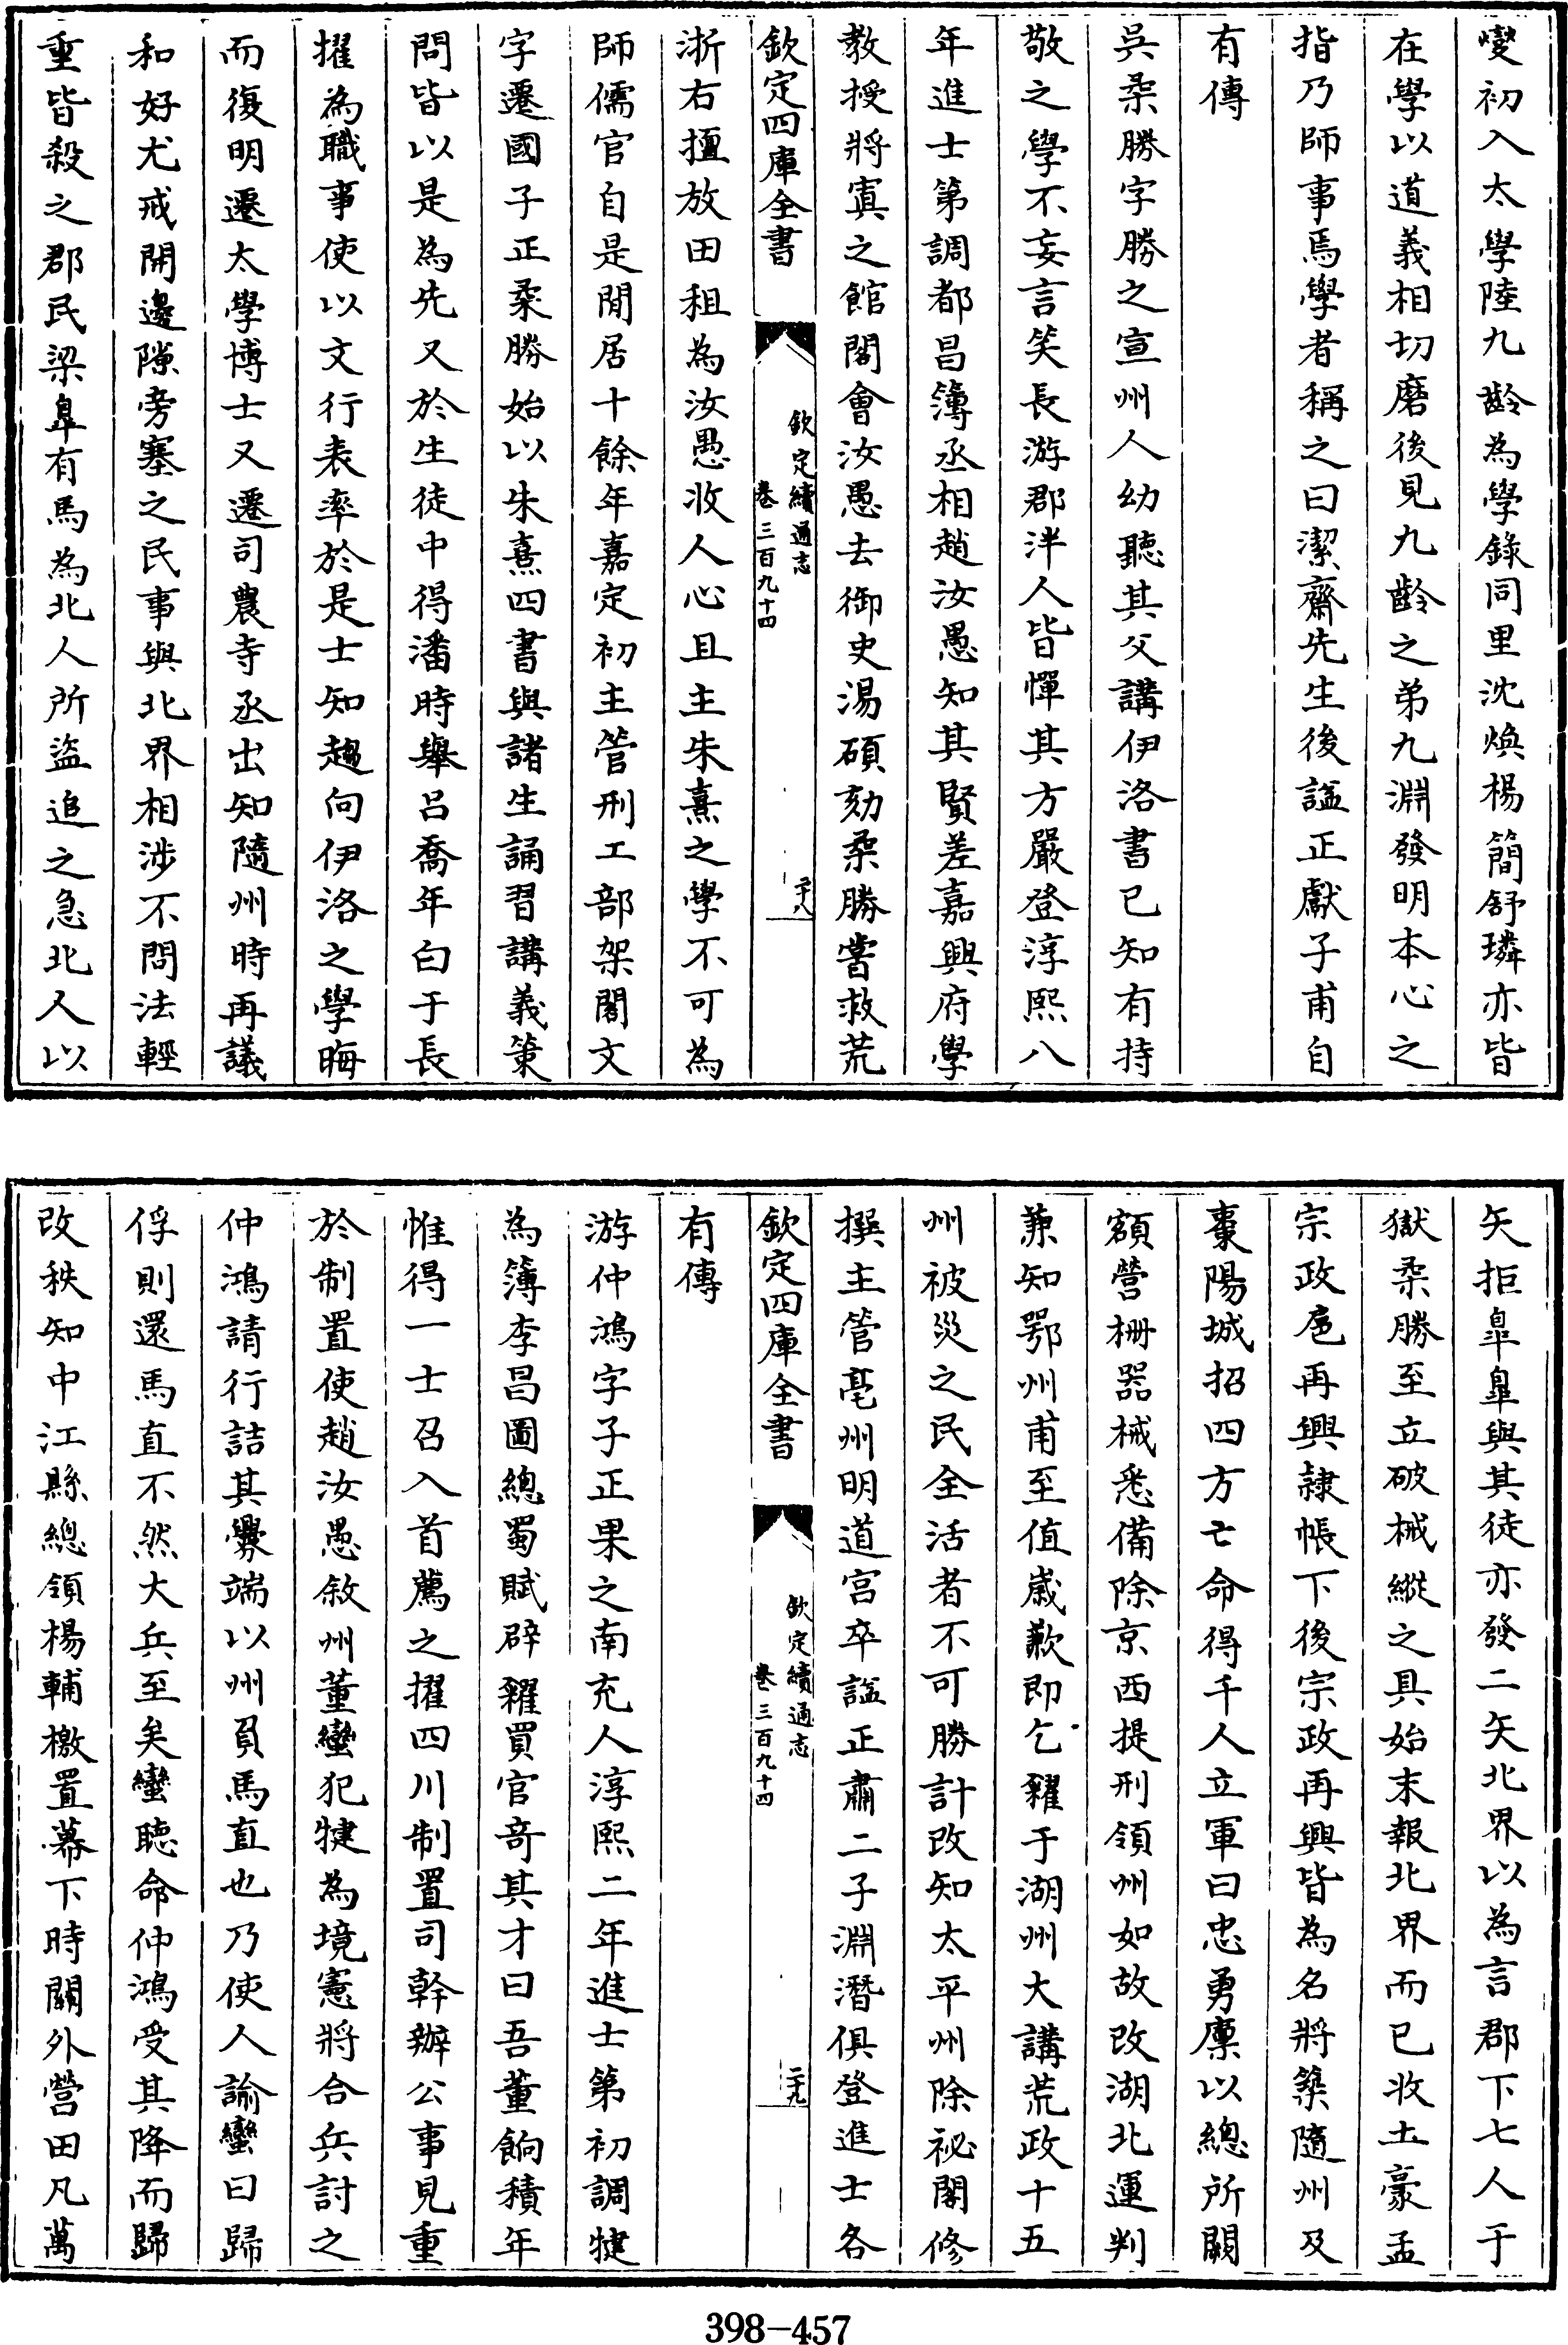 燮初入太學陸九齡為學錄同里沈煥楊簡舒璘亦皆
在學以道義相切磨後見九齡之弟九淵發明本心之
指乃師事焉學者稱之曰潔齋先生後謚正獻子甫自
有傳
吳柔勝字勝之宣州人幼聽其父講伊洛書已知有持
敬之學不妄言笑長游郡泮人皆憚其方嚴登淳熙八
年進士第調都昌簿丞相趙汝愚知其賢差嘉興府學
教授將寘之館閣會汝愚去御史湯碩劾柔勝嘗救荒
欽定四庫全書
欽定續通志
卷三百九十四
二十八
浙右擅放田租為汝愚收人心且主朱熹之學不可為
師儒官自是閒居十餘年嘉定初主管刑工部架閣文
字遷國子正柔勝始以朱熹四書與諸生誦習講義策
問皆以是為先又於生徒中得潘時舉呂喬年白于長
擢為職事使以文行表率於是士知趨向伊洛之學晦
而復明遷太學博士又遷司農寺丞出知隨州時再議
和好尤戒開邊隙旁塞之民事與北界相涉不問法輕
重皆殺之郡民梁皐有馬為北人所盜追之急北人以
矢拒皐皐與其徒亦發二矢北界以為言郡下七人于
獄柔勝至立破械縱之具始末報北界而已收土豪孟
宗政扈再興隸帳下後宗政再興皆為名將築隨州及
棗陽城招四方亡命得千人立軍曰忠勇廩以總所闕
額營柵器械悉備除京西提刑領州如故改湖北運判
兼知鄂州甫至值歲歉即乞糴于湖州大講荒政十五
州被災之民全活者不可勝計改知太平州除祕閣修
撰主管亳州明道宫卒謚正肅二子淵潛俱登進士各
欽定四庫全書
欽定續通志
卷三百九十四
二十九
有傳
游仲鴻字子正果之南充人淳熙二年進士第初調犍
為簿李昌圖總蜀賦辟糴買官奇其才曰吾董餉積年
惟得一士召入首薦之擢四川制置司幹辦公事見重
於制置使趙汝愚敘州董蠻犯犍為境憲將合兵討之
仲鴻請行詰其釁端以州負馬直也乃使人諭蠻曰歸
俘則還馬直不然大兵至矣蠻聴命仲鴻受其降而歸
改秩知中江縣總領楊輔檄置幕下時關外營田凡萬
398-457